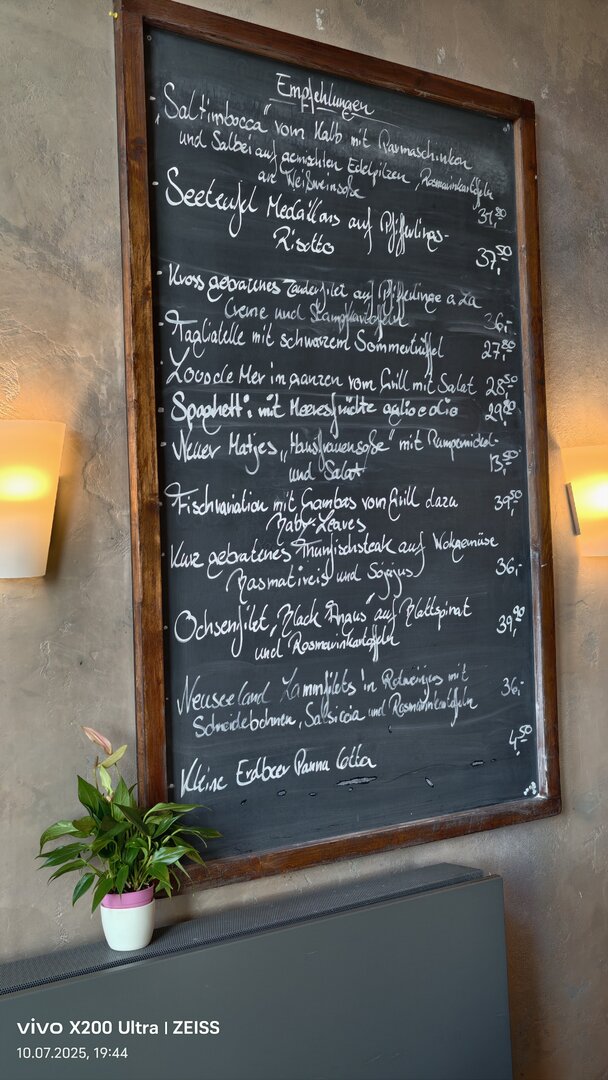 Empfehlungen
- Saltimbocca vom Kalb mit Parmaschinken
und Salbei auf gemischten Edelpilzen, Rosmarinkartoffeln
an Weißweinsoße
- Seeteufel Medaillons auf Pfifferlings-
Risotto 37,50
- Kross gebratenes Zanderfilet auf Pfifferlinge a la
Creme und Stampfkartoffeln 36,-
- Tagliatelle mit schwarzem Sommertrüffel 27,80
de Mer in ganzen vom Grill mit Salat 28,50
- Spaghetti mit Meeresfrüchte aglio e olio 29,80
- Neuer Matjes „Hausfrauensoße" mit Pumpernickel
und Salat
Fischvariation mit Gambas vom Grill dazu 39,50
Baby Leaves
Kurz gebratenes Thunfischsteak auf Wokgemüse
Basmatireis und 36,-
Ochsenfilet, Black Angus auf Blattspinat
und Rosmarinkartoffeln 39,90
Neuseeland Lammfilets in mit 36,-
Schneidebohnen, Salsiccia und Rosmarinkartoffeln
Kleine Erdbeer Panna Cotta 4,50
vivo X200 Ultra | ZEISS
10.07.2025, 19:44